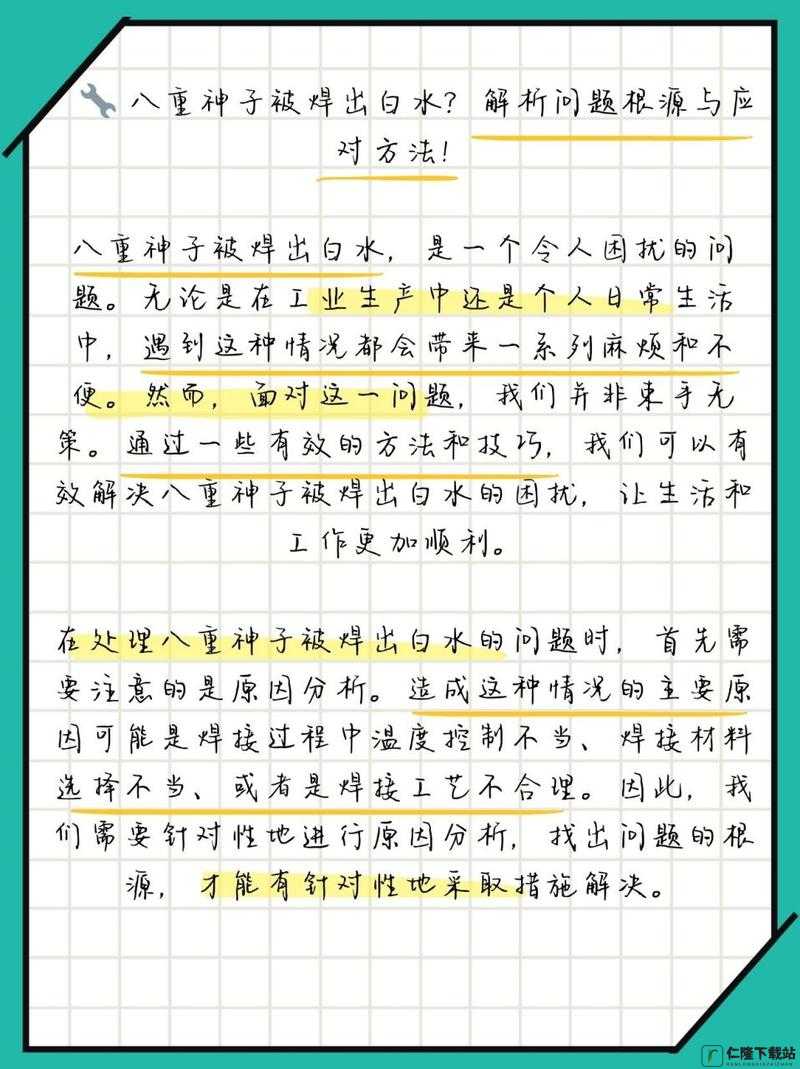 八重神子被焊出白水？解析问题根源与应
对方法！
八重神子被焊出白水，是一个令人困扰的问
题。无论是在工业生产中还是个人日常生活
中，遇到这种情况都会带来一系列麻烦和不
便。然而，面对这一问题，我们并非束手无
策。通过一些有效的方法和技巧，我们可以有
效解决八重神子被焊出白水的困扰，让生活和
工作更加顺利。
在处理八重神子被焊出白水的问题时，首先需
要注意的是原因分析。造成这种情况的主要原
因可能是焊接过程中温度控制不当、焊接材料
选择不当、或者是焊接工艺不合理。因此，我
们需要针对性地进行原因分析，找出问题的根
源，才能有针对性地采取措施解决。
仁隆下载站